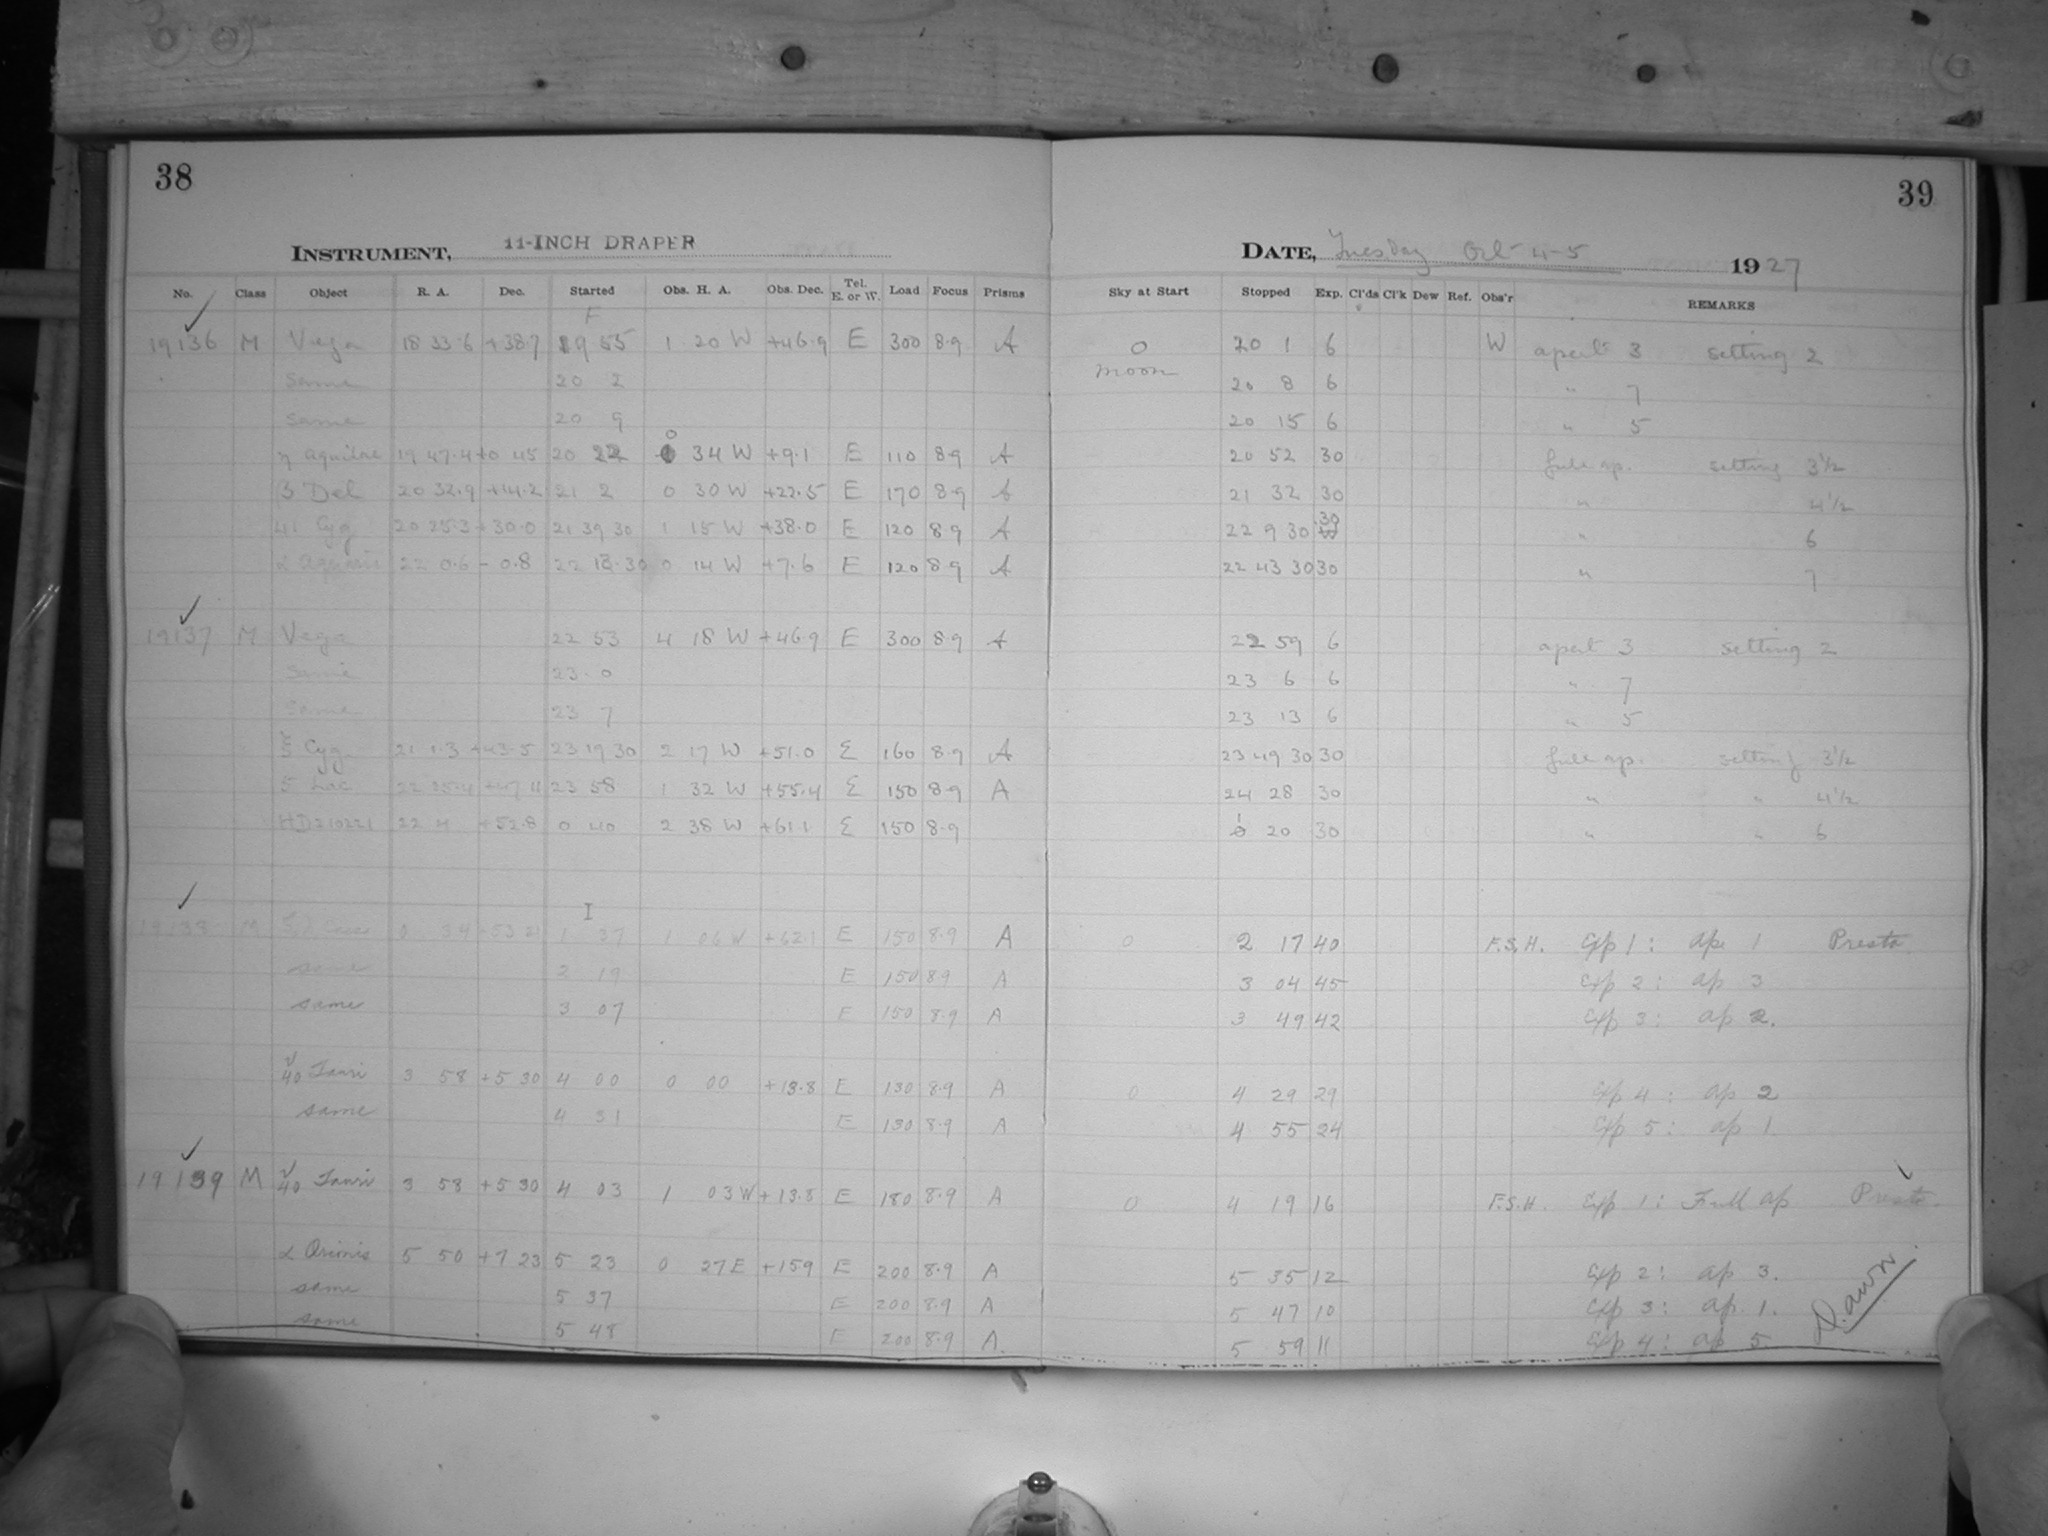 38
39
INSTRUMENT, 11-INCH DRAPER
DATE, Tuesday Oct 4-5 1927
No. Class Object R. A. Dec. Started Obs. H. A. Obs. Dec. Tel. E. or W. Load Focus Prisms Sky at Start Stopped Exp. Cl'ds Cl'k Dew Ref. Obs'r REMARKS
19136 M Vega 18 33.6 +38.7 19 55 1 20 W +46.9 E 300 8.9 A 0 20 1 6 W apert 3 setting 2
same 20 2 moon 20 8 6 " 7
same 20 9 20 15 6 " 5
η Aquilae 19 47.4 +0 45 20 22 0 34 W +9.1 E 110 8.9 A 20 52 30 full ap. setting 3½
β Del 20 32.9 +14.2 21 2 0 30 W +22.5 E 170 8.9 A 21 32 30 " 4½
41 Cyg 20 25.3 +30.0 21 39 30 1 15 W +38.0 E 120 8.9 A 22 9 30 30 " 6
α Aquarii 22 0.6 -0.8 22 13 30 0 14 W +7.6 E 120 8.9 A 22 43 30 30 " 7
19137 M Vega 22 53 4 18 W +46.9 E 300 8.9 A 22 59 6 apert 3 setting 2
same 23 0 23 6 6 " 7
same 23 7 23 13 6 " 5
ξ Cyg 21 1.3 +43.5 23 19 30 2 17 W +51.0 E 160 8.9 A 23 49 30 30 full ap. setting 3½
5 Lac 22 25.4 +47 11 23 58 1 32 W +55.4 E 150 8.9 A 24 28 30 " " 4½
HD210221 22 4 +52.8 0 40 2 38 W +61.1 E 150 8.9 1 20 30 " " 6
I
19138 M 0 34 +53 21 1 37 1 06 W +62.1 E 150 8.9 A 0 2 17 40 F.S.H. Exp 1: ap 1 Presto
same 2 19 E 150 8.9 A 3 04 45 Exp 2: ap 3
same 3 07 E 150 8.9 A 3 49 42 Exp 3: ap 2.
40 Tauri 3 58 +5 30 4 00 0 00 +13.8 E 130 8.9 A 0 4 29 29 Exp 4: ap 2
same 4 31 E 130 8.9 A 4 55 24 Exp 5: ap 1
19139 M 40 Tauri 3 58 +5 30 4 03 1 03 W +13.8 E 180 8.9 A 0 4 19 16 F.S.H. Exp 1: Full ap Presto
α Orionis 5 50 +7 23 5 23 0 27 E +15.9 E 200 8.9 A 5 35 12 Exp 2: ap 3.
same 5 37 E 200 8.9 A 5 47 10 Exp 3: ap. 1.
same 5 48 E 200 8.9 A. 5 59 11 Exp 4: ap 5.
Dawn